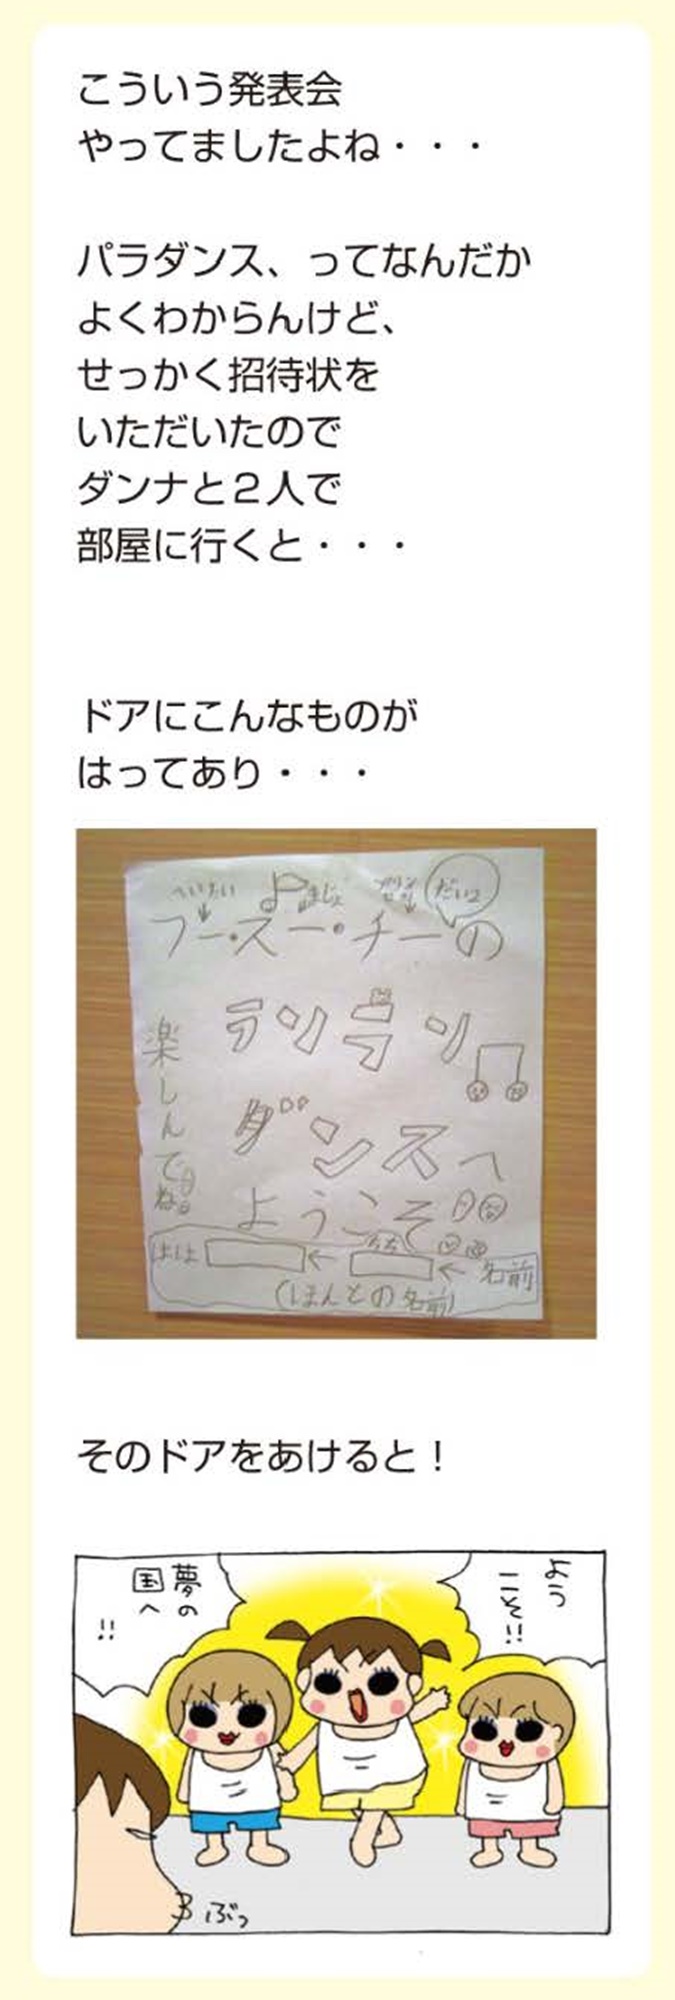 こういう発表会
やってましたよね・・・
パラダンス、ってなんだか
よくわからんけど、
せっかく招待状を
いただいたので
ダンナと２人で
部屋に行くと・・・
ドアにこんなものが
はってあり・・・
へいたい
まじょ
だいこ
フー・スー・チーの
ランラン
ダンスへ
ようこそ
楽しんでね
はは
ちち
名前
(ほんとの名前)
そのドアをあけると！
ようこそ!!
夢の国へ!!
ぶっ